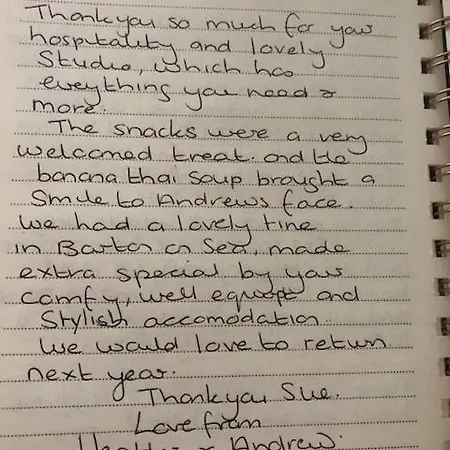 Thankyou so much for your
hospitality and lovely
Studio, which has
everything you need &
more.
The snacks were a very
welcomed treat. and the
banana thai soup brought a
Smile to Andrews face.
We had a lovely time
in Barton on Sea, made
extra special by your
comfy, well equipt and
Stylish accomodation.
We would love to return
next year.
Thankyou Sue.
Love from
& Andrew.